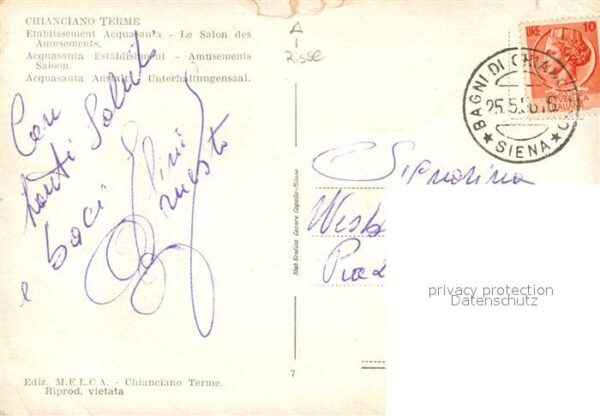 CHIANCIANO TERME
Etablissement Acquasanta - Le Salon des
Amusements.
Acquasanta Establishment - Amusements
Saloon.
Acquasanta Unterhaltungensaal.
A
Risse
LIRE 10
BAGNI DI CHIANCIANO
25.5.
SIENA
Con
tanti Saluti
e baci
Signorina
Stab. Grafico Cesare Capello - Milano
privacy protection
Datenschutz
7
Ediz. M.E.L.C.A. - Chianciano Terme.
Riprod. vietata